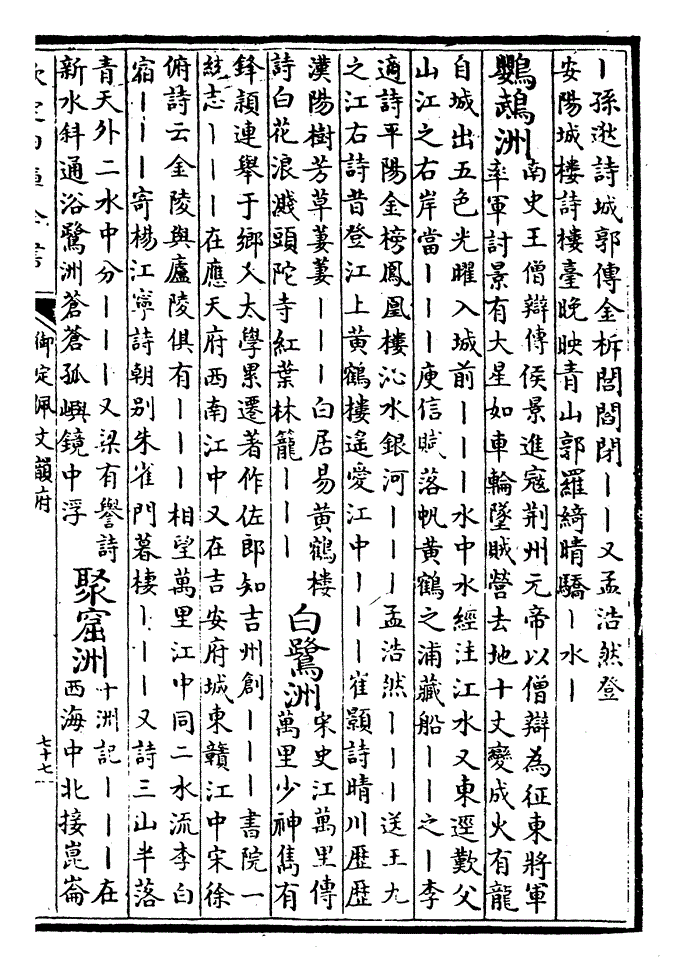 ｜孫逖詩城郭傳金柝閭閻閉｜｜又孟浩然登
安陽城樓詩樓臺晚映青山郭羅綺晴驕｜水｜
鸚鵡洲
南史王僧辯傳侯景進寇荆州元帝以僧辯為征東將軍
率軍討景有大星如車輪墜賊營去地十丈變成火有龍
自城出五色光曜入城前｜｜｜水中水經注江水又東逕歎父
山江之右岸當｜｜｜庾信賦落帆黃鶴之浦藏船｜｜之｜李
適詩平陽金榜鳳凰樓沁水銀河｜｜｜孟浩然｜｜｜送王九
之江右詩昔登江上黃鶴樓遙愛江中｜｜｜崔顥詩晴川歷歷
漢陽樹芳草萋萋｜｜｜白居易黃鶴樓
詩白花浪濺頭陀寺紅葉林籠｜｜｜
白鷺洲
宋史江萬里傳
萬里少神雋有
鋒頴連舉于鄉入太學累遷著作佐郎知吉州創｜｜｜書院一
統志｜｜｜在應天府西南江中又在吉安府城東贛江中宋徐
俯詩云金陵與廬陵俱有｜｜｜相望萬里江中同二水流李白
宿｜｜｜寄楊江寧詩朝别朱雀門暮棲｜｜｜又詩三山半落
青天外二水中分｜｜｜又梁有譽詩
新水斜通浴鷺洲蒼蒼孤嶼鏡中浮
聚窟洲
十洲記｜｜｜在
西海中北接崑崙
欽定四庫全書
御定佩文韻府
七十七